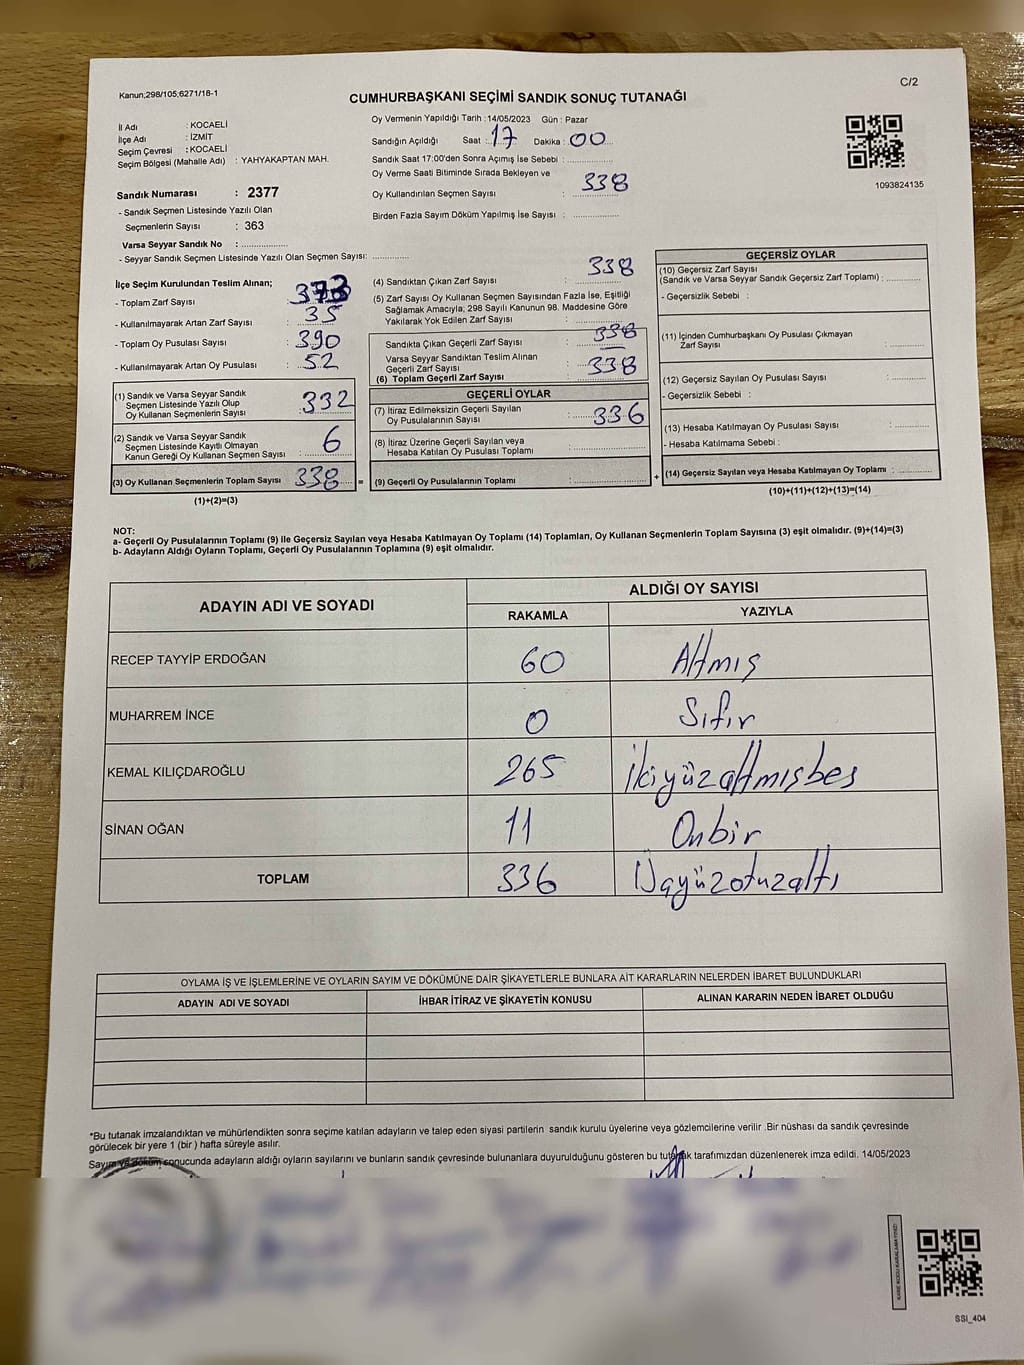 C/2
Kanun;298/105;6271/18-1
CUMHURBAŞKANI SEÇİMİ SANDIK SONUÇ TUTANAĞI
İl Adı : KOCAELİ
İlçe Adı : İZMİT
Seçim Çevresi : KOCAELİ
Seçim Bölgesi (Mahalle Adı) : YAHYAKAPTAN MAH.
Sandık Numarası : 2377
- Sandık Seçmen Listesinde Yazılı Olan
Seçmenlerin Sayısı : 363
Varsa Seyyar Sandık No : ..................
- Seyyar Sandık Seçmen Listesinde Yazılı Olan Seçmen Sayısı: ..............
Oy Vermenin Yapıldığı Tarih : 14/05/2023 Gün : Pazar
Sandığın Açıldığı Saat : 17 Dakika : 00
Sandık Saat 17:00'den Sonra Açımış İse Sebebi : ..................
Oy Verme Saati Bitiminde Sırada Bekleyen ve
Oy Kullandırılan Seçmen Sayısı : 338
Birden Fazla Sayım Döküm Yapılmış İse Sayısı : ..................
1093824135
İlçe Seçim Kurulundan Teslim Alınan;
- Toplam Zarf Sayısı :
- Kullanılmayarak Artan Zarf Sayısı : 35
- Toplam Oy Pusulası Sayısı : 390
- Kullanılmayarak Artan Oy Pusulası : 52
(1) Sandık ve Varsa Seyyar Sandık
Seçmen Listesinde Yazılı Olup
Oy Kullanan Seçmenlerin Sayısı : 332
(2) Sandık ve Varsa Seyyar Sandık
Seçmen Listesinde Kayıtlı Olmayan
Kanun Gereği Oy Kullanan Seçmen Sayısı : 6
(3) Oy Kullanan Seçmenlerin Toplam Sayısı 338 =
(1)+(2)=(3)
(4) Sandıktan Çıkan Zarf Sayısı : 338
(5) Zarf Sayısı Oy Kullanan Seçmen Sayısından Fazla İse, Eşitliği
Sağlamak Amacıyla; 298 Sayılı Kanunun 98. Maddesine Göre
Yakılarak Yok Edilen Zarf Sayısı :
Sandıkta Çıkan Geçerli Zarf Sayısı : 338
Varsa Seyyar Sandıktan Teslim Alınan
Geçerli Zarf Sayısı :
(6) Toplam Geçerli Zarf Sayısı : 338
GEÇERLİ OYLAR
(7) İtiraz Edilmeksizin Geçerli Sayılan
Oy Pusulalarının Sayısı : 336
(8) İtiraz Üzerine Geçerli Sayılan veya
Hesaba Katılan Oy Pusulası Toplamı :
(9) Geçerli Oy Pusulalarının Toplamı : +
GEÇERSİZ OYLAR
(10) Geçersiz Zarf Sayısı
(Sandık ve Varsa Seyyar Sandık Geçersiz Zarf Toplamı) :
- Geçersizlik Sebebi :
(11) İçinden Cumhurbaşkanı Oy Pusulası Çıkmayan
Zarf Sayısı :
(12) Geçersiz Sayılan Oy Pusulası Sayısı :
- Geçersizlik Sebebi :
(13) Hesaba Katılmayan Oy Pusulası Sayısı :
- Hesaba Katılmama Sebebi :
(14) Geçersiz Sayılan veya Hesaba Katılmayan Oy Toplamı :
(10)+(11)+(12)+(13)=(14)
NOT:
a- Geçerli Oy Pusulalarının Toplamı (9) ile Geçersiz Sayılan veya Hesaba Katılmayan Oy Toplamı (14) Toplamları, Oy Kullanan Seçmenlerin Toplam Sayısına (3) eşit olmalıdır. (9)+(14)=(3)
b- Adayların Aldığı Oyların Toplamı, Geçerli Oy Pusulalarının Toplamına (9) eşit olmalıdır.
ADAYIN ADI VE SOYADI ALDIĞI OY SAYISI
RAKAMLA YAZIYLA
RECEP TAYYİP ERDOĞAN 60 Altmış
MUHARREM İNCE 0 Sıfır
KEMAL KILIÇDAROĞLU 265 İkiyüzaltmışbeş
SİNAN OĞAN 11 Onbir
TOPLAM 336 Üçyüzotuzaltı
OYLAMA İŞ VE İŞLEMLERİNE VE OYLARIN SAYIM VE DÖKÜMÜNE DAİR ŞİKAYETLERLE BUNLARA AİT KARARLARIN NELERDEN İBARET BULUNDUKLARI
ADAYIN ADI VE SOYADI İHBAR İTİRAZ VE ŞİKAYETİN KONUSU ALINAN KARARIN NEDEN İBARET OLDUĞU
*Bu tutanak imzalandıktan ve mühürlendikten sonra seçime katılan adayların ve talep eden siyasi partilerin sandık kurulu üyelerine veya gözlemcilerine verilir .Bir nüshası da sandık çevresinde
görülecek bir yere 1 (bir ) hafta süreyle asılır.
Sayım ve döküm sonucunda adayların aldığı oyların sayılarını ve bunların sandık çevresinde bulunanlara duyurulduğunu gösteren bu tutanak tarafımızdan düzenlenerek imza edildi. 14/05/2023
SSI_404